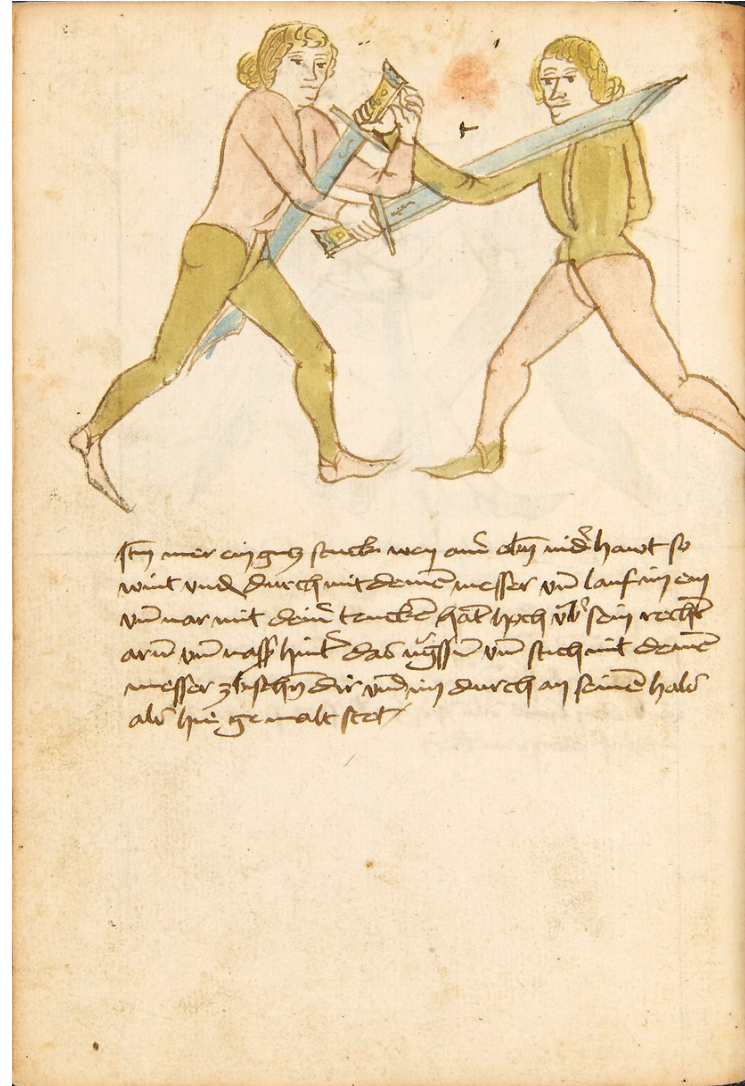 Itm mer ein gucz stuck wen ainer obn nider hawt so
wint vnden durch mit deinē messer vn̄ lauf im ein
vn̄ var mit deinr lincken hāt hoch vbr sein rechtē
arm vn̄ vass hintr das vgssn̄ vn̄ stich mit deinē
messer zbischn dir vnd im durch an seinē hals
als hie gemalt stet